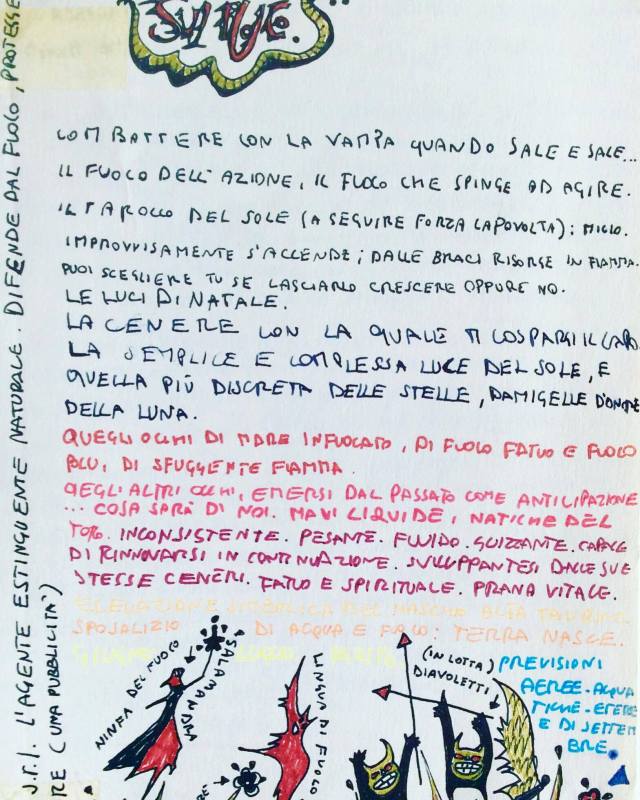 SUL FUOCO.
COMBATTERE CON LA VAMPA QUANDO SALE E SALE...
IL FUOCO DELL'AZIONE, IL FUOCO CHE SPINGE AD AGIRE.
IL TAROCCO DEL SOLE (A SEGUIRE FORZA CAPOVOLTA);
IMPROVVISAMENTE S'ACCENDE; DALLE BRACI RISORGE IN FIAMMA.
PUOI SCEGLIERE TU SE LASCIARLO CRESCERE OPPURE NO.
LE LUCI DI NATALE.
LA CENERE CON LA QUALE TI COSPARGI IL CAPO.
LA SEMPLICE E COMPLESSA LUCE DEL SOLE, E
QUELLA PIÙ DISCRETA DELLE STELLE, DAMIGELLE D'ONORE
DELLA LUNA.
QUEGLI OCCHI DI MARE INFUOCATO, DI FUOCO FATUO E FUOCO
BLU, DI SFUGGENTE FIAMMA.
QEGLI ALTRI OCCHI, EMERSI DAL PASSATO COME ANTICIPAZIONE
... COSA SARÀ DI NOI. MANI LIQUIDE, NATICHE DEL
TORO. INCONSISTENTE. PESANTE. FLUIDO. GUIZZANTE. CAPACE
DI RINNOVARSI IN CONTINUAZIONE. SVILUPPANTESI DALLE SUE
STESSE CENERI. FATUO E SPIRITUALE. PRANA VITALE.
ELEVAZIONE SIMBOLICA DEL MASCHIO ALFA TAURINO.
SPOSALIZIO DI ACQUA E FUOCO: TERRA NASCE.
NINFA DEL FUOCO
SALAMANDRA
LINGUA DI FUOCO
(IN LOTTA)
DIAVOLETTI
PREVISIONI
AEREE-ACQUA
TICHE-ETEREE
E DI SETTEM
BRE.
S.r.l. L'AGENTE ESTINGUENTE NATURALE. DIFENDE DAL FUOCO, PROTEGGE
RE (UMA PUBBLICITA')